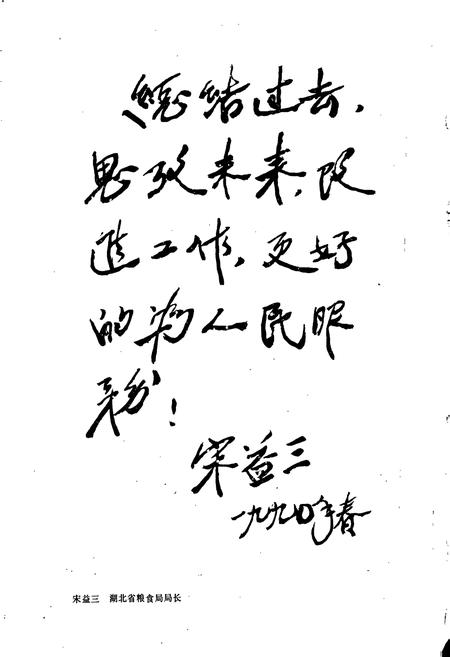 总结过去，
思考未来，改
进工作，更好
的为人民服
务！
宋益三
一九九〇年春
宋益三 湖北省粮食局局长